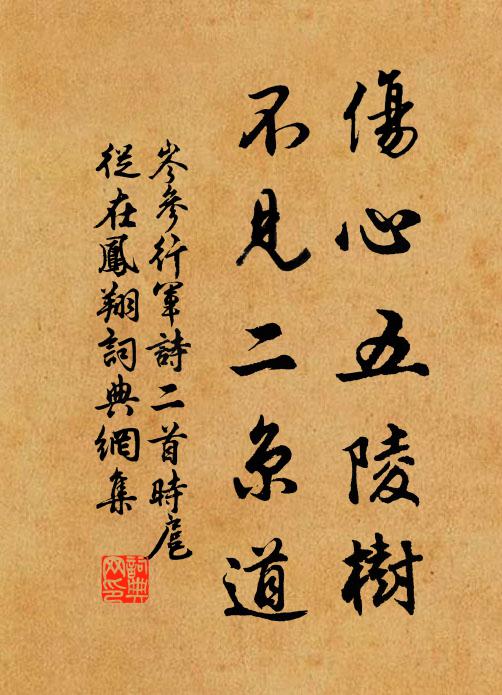 傷心五陵樹
不見二京道
岑參行軍詩二首時扈
從在鳳翔詞典網集
詞典网印